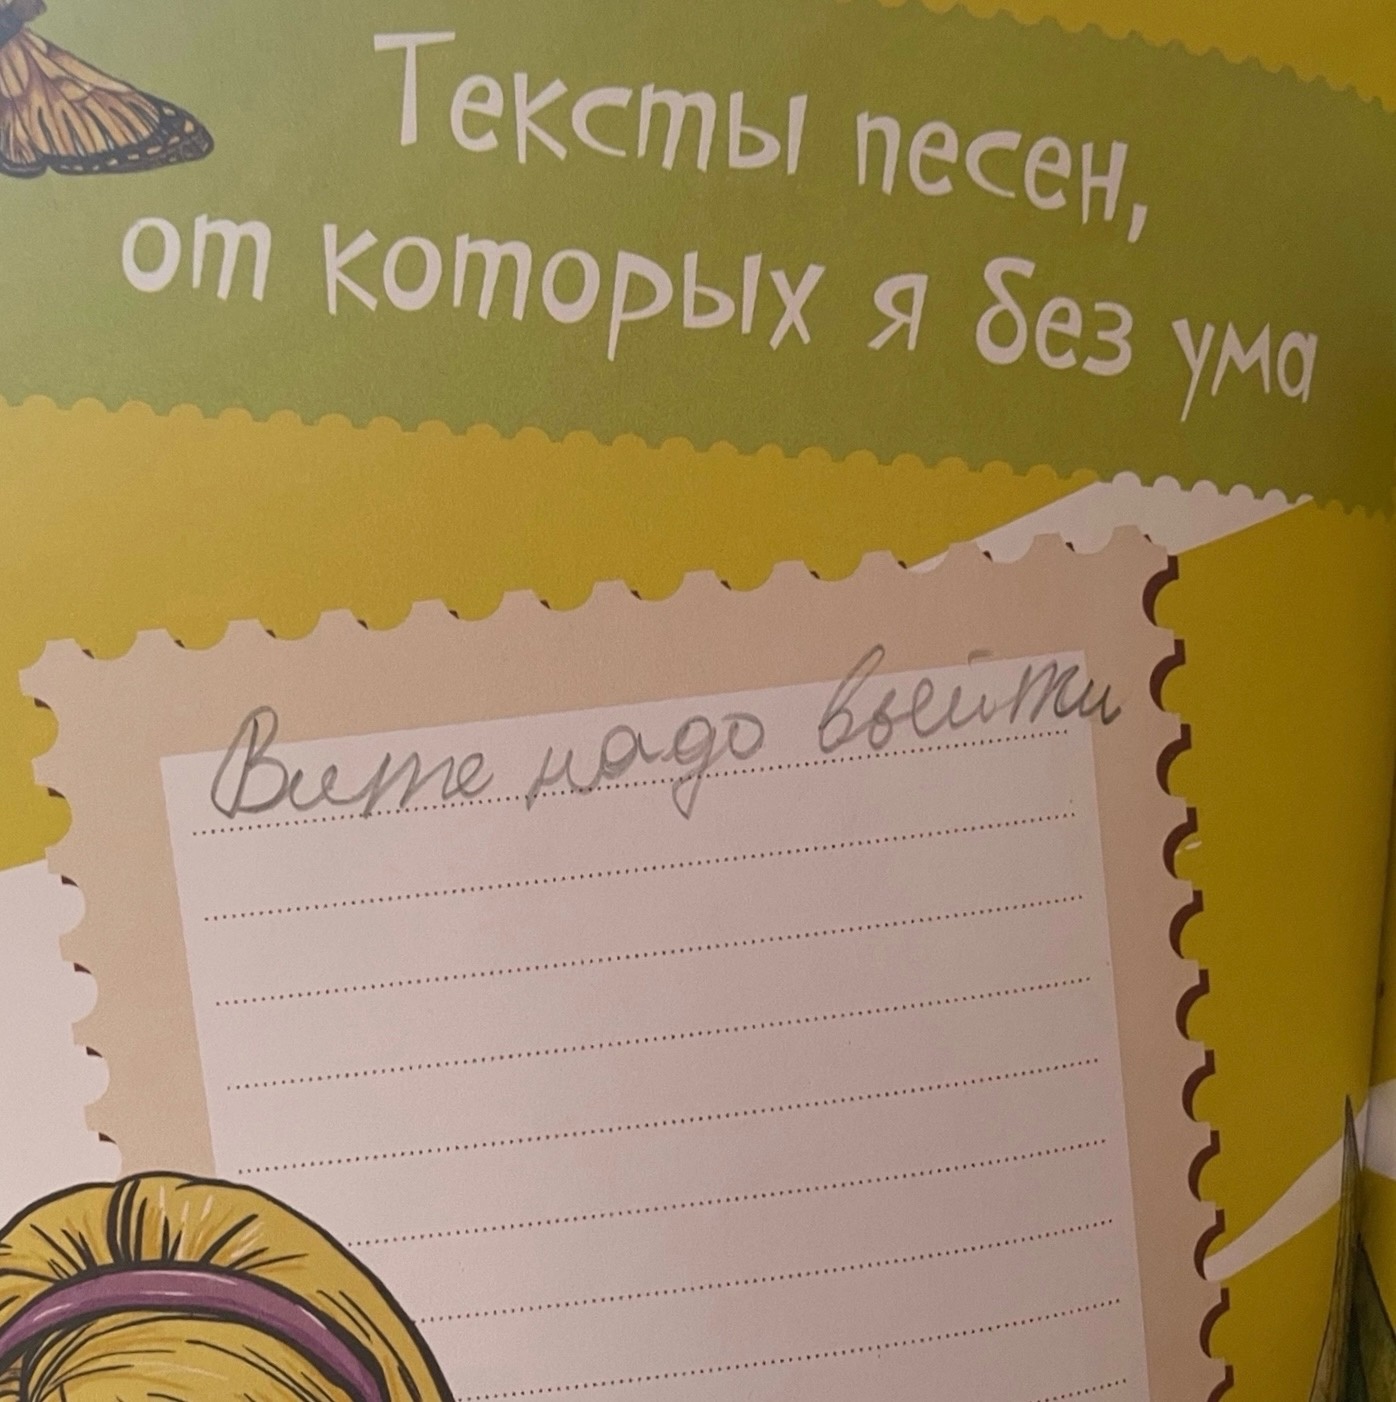 Тексты песен,
от которых я без ума
Вите надо выйти